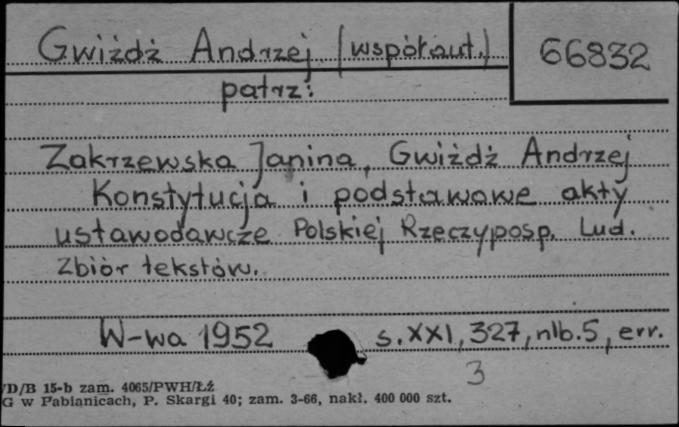 Gwiżdż Andrzej (współaut.) 66832
patrz:
Zakrzewska Janina, Gwiżdż Andrzej
Konstytucja i podstawowe akty
ustawodawcze Polskiej Rzeczyposp. Lud.
Zbiór tekstów.
W-wa 1952 s. XXI, 327, nlb. 5, err.
3
/D/B 15-b zam. 4065/PWH/ŁŻ
G w Pabianicach, P. Skargi 40; zam. 3-66, nakł. 400 000 szt.